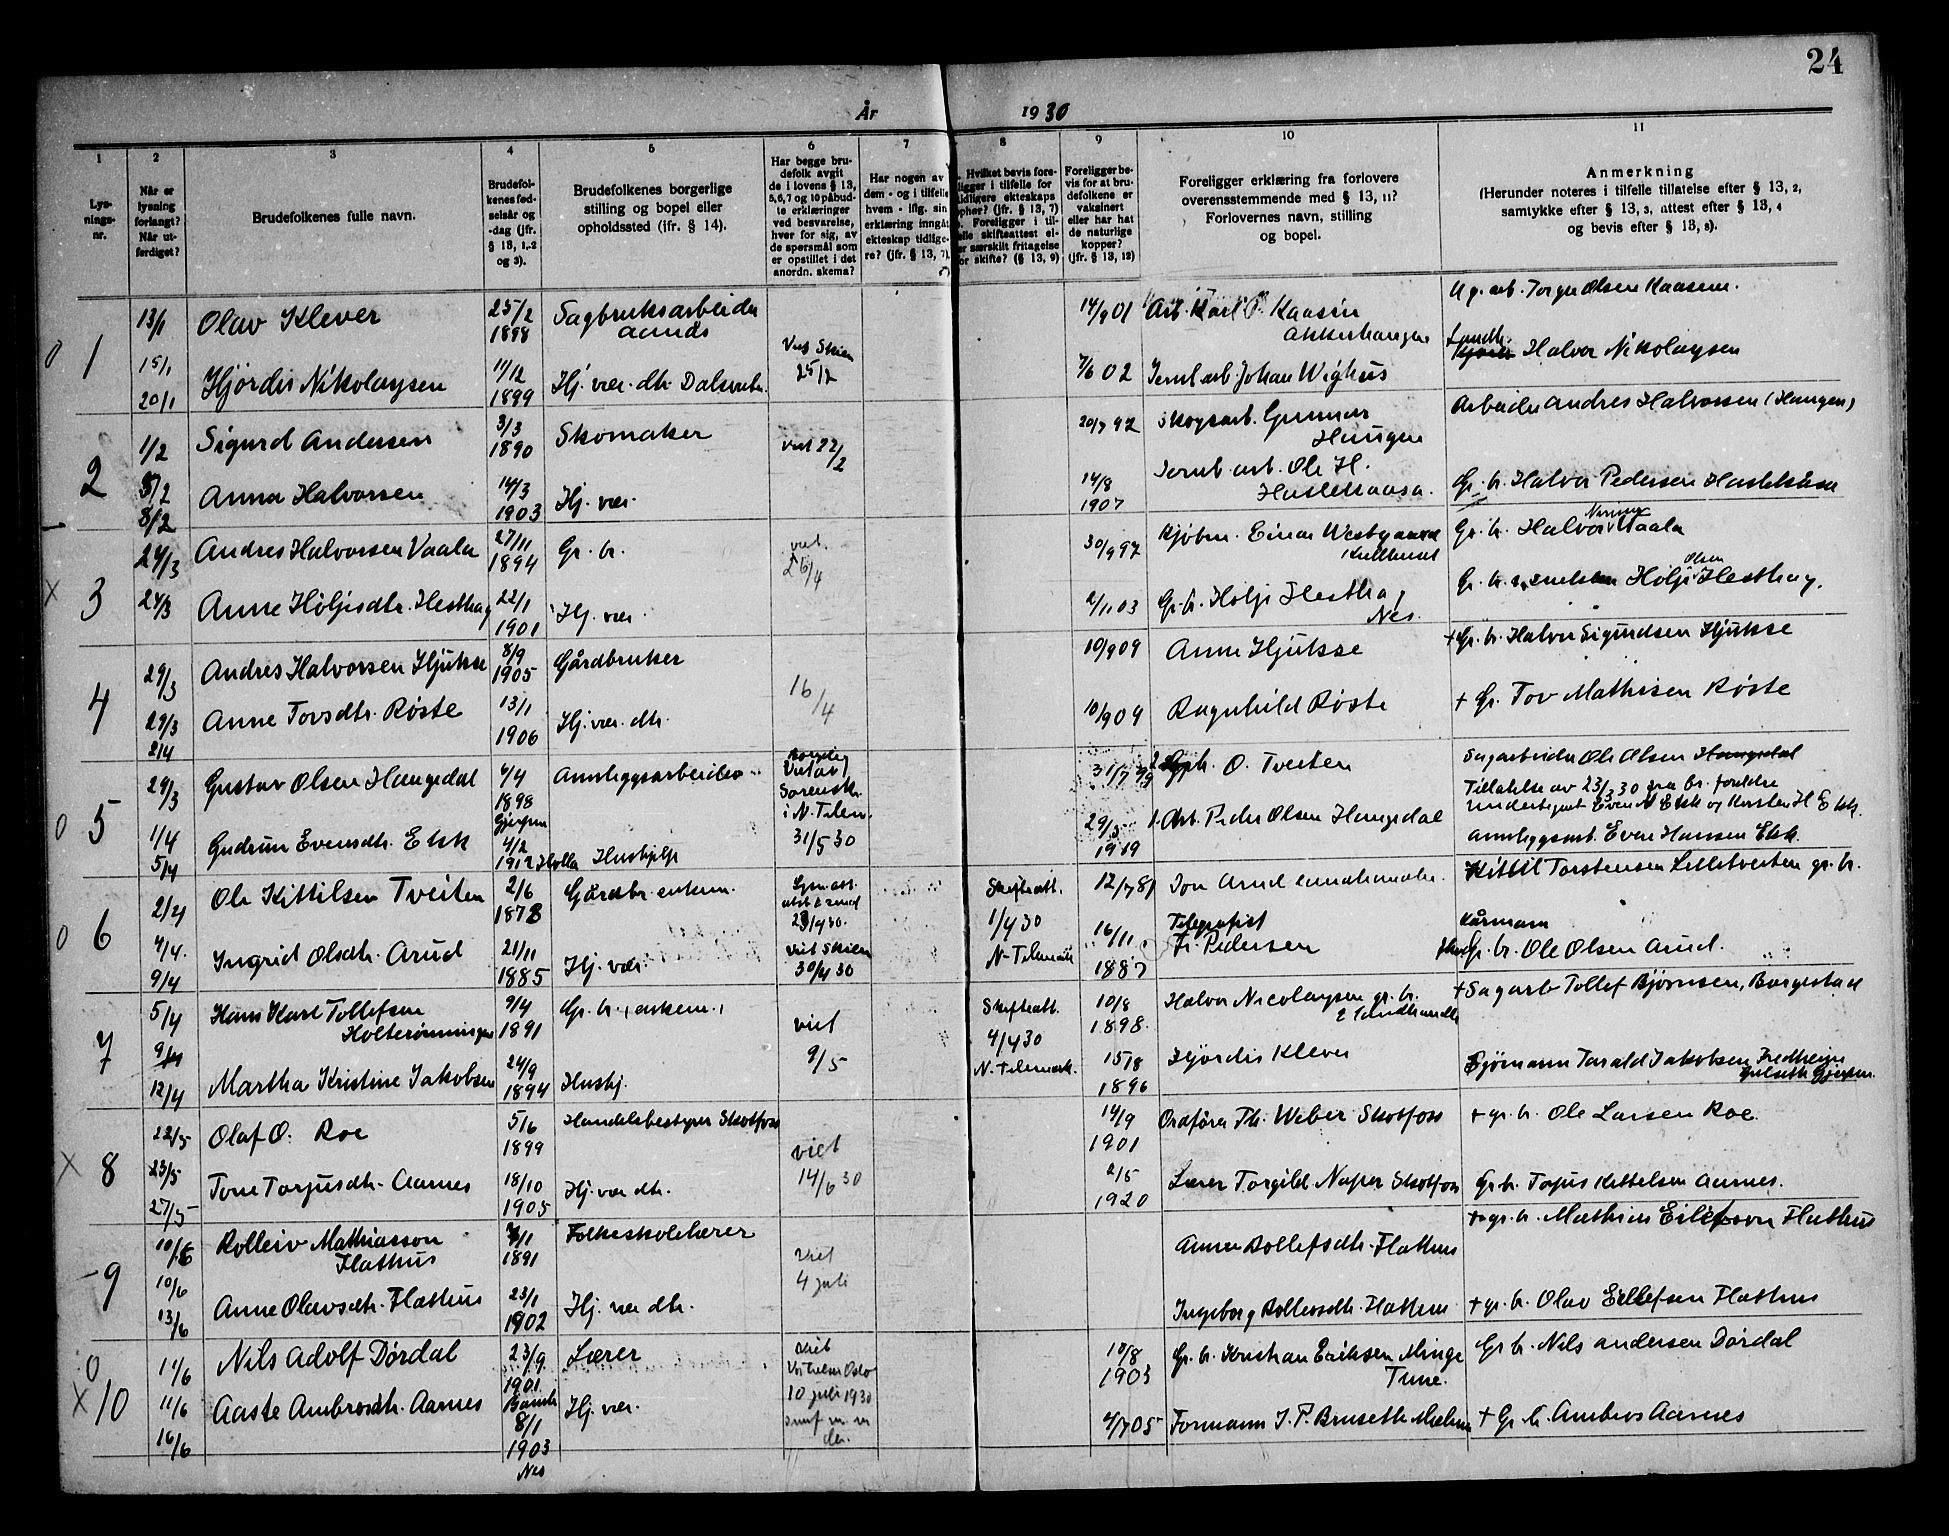 24
År 1930
1 2 3 4 5 6 7 8 9 10 11
Lysnings-nr.
Når er lysning forlangt? Når utferdiget?
Brudefolkenes fulle navn.
Brudefolkenes fødselsår og -dag (jfr. § 13, 1, 2 og 3).
Brudefolkenes borgerlige stilling og bopel eller opholdssted (jfr. § 14).
Har begge brudefolk avgit de i lovens § 13, 5, 6, 7 og 10 påbudte erklæringer ved besvarelse, hver for sig, av de spørsmål som er opstillet i det anordn. skema?
Har nogen av dem - og i tilfelle hvem - iflg. sin erklæring inngått ekteskap tidligere? (jfr. § 13, 7).
Foreligger bevis for at brudefolkene er vaksinert eller har hat de naturlige kopper? (jfr. § 13, 12)
Foreligger erklæring fra forlovere overensstemmende med § 13, 11? Forlovernes navn, stilling og bopel.
Anmerkning
(Herunder noteres i tilfelle tillatelse efter § 13, 2,
samtykke efter § 13, 3, attest efter § 13, 4
og bevis efter § 13, 8).
0 1
13/1 Olav Klever 25/2 1898 Sagbruksarbeider 14/9 01 Arb. Karl O. Kaasin Akkerhaugen
15/1 20/1 Hjördis Nikolaysen 11/12 1899 Hj. vær. dtr. Viet Skien 25/2 7/6 02 Jernb arb. Johan Wighus Landh. Halvor Nikolaysen
2
1/2 Sigurd Andersen 3/3 1890 Skomaker viet 22/2 20/7 92 Skogsarb. Gunnar Haugen Arbeider Andres Halvorsen (Haugen)
5/2 8/2 Anna Halvorsen 14/3 1903 Hj. vær 14/8 1907 Jernb. arb. Ole H. Gr. br. Halvor Pedersen
x 3
24/3 Andres Halvorsen Vaala 27/11 1894 Gr. br. viet. 26/4 30/9 97 Kjøbm. Einar Westgaard Gr. br. Halvor Vaala
24/3 Anne Höljesdtr. Hesthag 22/1 1901 Hj. vær. 2/11 03 Gr. br. Hölje Hesthag, Nes. Gr. br. Hölje Olsen Hesthag.
4
29/3 Andres Halvorsen Hjukse 8/9 1905 Gårdbruker 16/4 10/9 09 Anne Hjukse + Gr. br. Halvor Sigurdsen Hjukse
29/3 2/4 Anne Tovsdtr. Röste 13/1 1906 Hj. vær. dtr. 10/9 09 Ragnhild Röste + Gr. Tov Mathisen Röste
0 5
29/3 Gustav Olsen Haugedal 4/4 1898 Gjerpen Anleggsarbeider Borgerlig Viet av Sorenskr. i N. Telem. 31/5 30 O. Tveiten Sagarbeider Ole Olsen Haugedal
Tillatelse av 23/3 30 fra br. foreldre
1/4 5/4 Gudrun Evensdtr. Eik 4/2 1912 Holla Hushjelp 29/5 1919 1. Arb. Peder Olsen Haugedal Anleggsarb. Even Hansen Eik.
0 6
2/4 Ole Kittilsen Tveiten 2/6 1878 Gårdbr. enkem. 23/4 30. Skifteatt. 1/4 30 12/7 81 Jon Arud landhandler Kittil Torstensen Lilletveiten gr. br.
4/4. 9/4 Ingrid Olsdtr. Arud 21/11 1885 Hj. vær. viet Skien 30/4 30 N-Telemark 16/11 1887 Telegrafist Fr. Pedersen Kårmann gr. br. Ole Olsen Arud.
7
5/4 Hans Karl Tollefsen Holterönningen 9/4 1891 Gr. br., enkem., viet 9/5 Skifteatt. 4/4 30 N. Telemark. 10/8 1898. Halvor Nicolaysen gr. br. & landhandler + Sagarb Tollef Björnsen, Borgestad
9/4 12/4 Martha Kristine Jakobsen 24/9 1894 Hushj. 15/8 1896 Hjördis Klever Sjömann Tarald Jakobsen Fredheim Gjerpen.
x 8
22/5 Olaf O. Roe 5/6 1899 Handelsbestyrer Skotfoss viet 14/6 30 14/9 1901 Ordförer Th. Weber Skotfoss + gr. br. Ole Larsen Roe
23/5 27/5 Tone Torjusdtr. Aarnes 18/10 1905 Hj. vær dtr. 2/5 1920 Lærer Torgild Naper Skotfoss Gr. br. Torjus Kittelsen Aarnes.
9
10/6 Rolleiv Mathiasson Flathus 7/1 1891 Folkeskolelærer Viet 4 juli Anne Rollefsdtr. Flathus + gr. br. Mathias Eilefson Flathus
10/6 13/6 Anne Olavsdtr. Flathus 23/1 1902 Hj. vær dtr. Ingeborg Rolleivsdtr. Flathus + gr. br. Olav Eilefsen Flathus
0 x 10
11/6 Nils Adolf Dördal 23/9 1901. Bamble Lærer viet Oslo 10 juli 1930 10/8 1903 Gr. br. Kristian Eriksen Minge Tune. Gr. br. Nils Andersen Dördal
11/6 16/6 Aaste Ambrosdtr. Aarnes 8/1 1903 Nes Hj. vær. 4/7 05 Formann J. P. Bruseth + Gr. br. Ambros Aarnes